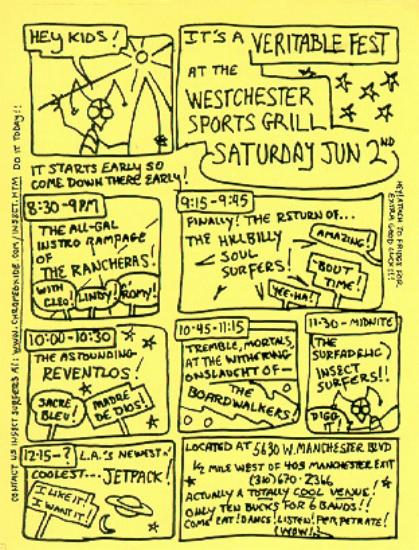 HEY KIDS!
IT'S A VERITABLE FEST
AT THE
WESTCHESTER
SPORTS GRILL
SATURDAY JUN 2ND
IT STARTS EARLY SO
COME DOWN THERE EARLY!
8:30-9PM
THE ALL-GAL
INSTRO RAMPAGE
OF
THE RANCHERAS!
WITH
CLEO!
LINDY!
&
ROMY!
9:15-9:45
FINALLY! THE RETURN OF...
THE HILLBILLY
SOUL
SURFERS!
AMAZING!
'BOUT
TIME!
YEE-HA!
10:00-10:30
THE ASTOUNDING
REVENTLOS!
SACRE
BLEU!
MADRE
DE DIOS!
10:45-11:15
TREMBLE, MORTALS,
AT THE WITHERING
ONSLAUGHT OF-
THE
BOARDWALKERS!
11:30-MIDNITE
(THE
SURFADELIC)
INSECT
SURFERS!!
DIGG
IT!
12:15-?
L.A.'S NEWEST n'
COOLEST... JETPACK!
I LIKE IT!
I WANT IT!
LOCATED AT 5630 W. MANCHESTER BLVD
1/2 MILE WEST OF 405 MANCHESTER EXIT
(310) 670-2366
ACTUALLY A TOTALLY COOL VENUE!
ONLY TEN BUCKS FOR 6 BANDS!!
COME EAT! DANCE! LISTEN! PERPETRATE!
(WOW!)
CONTACT US INSECT SURFERS AT: WWW.CHROMEOXIDE.COM/INSECT.HTM DO IT TODAY!!
EXTRA GOOD LUCK!!!